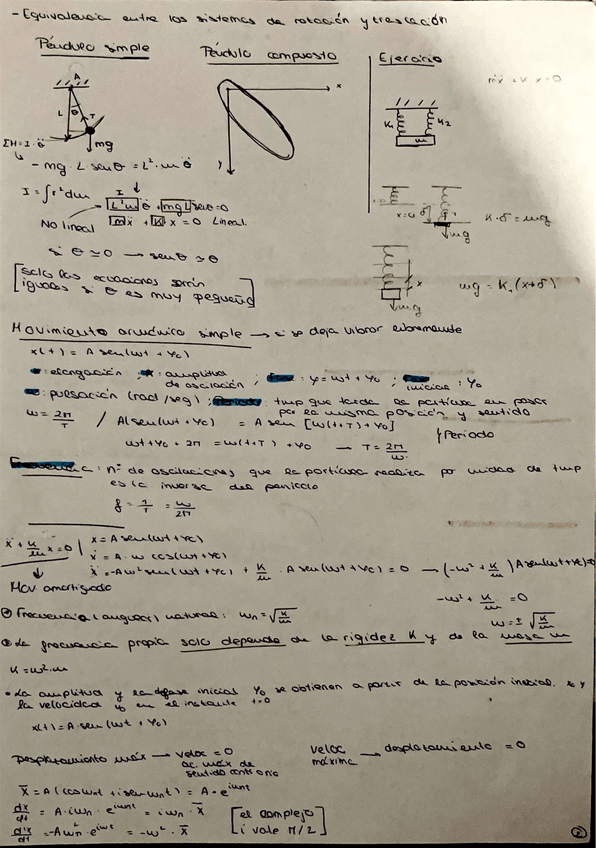 - Equivalencia entre los sistemas de rotación y traslación
Péndulo simple
Péndulo compuesto
Ejercicio
mẍ + Kx = 0
A
L
θ
T
mg
x
y
K1
K2
m
ΣM = I · θ̈
- mg · L · senθ = L² · m θ̈
I = ∫r²dm
I
L²m θ̈ + mgL senθ = 0
No lineal
m ẍ + K x = 0 Lineal
x=0
δ
mg
K · δ = mg
si θ ≃ 0 → senθ ≃ θ
[solo las ecuaciones serán
iguales si θ es muy pequeño]
x
mg
mg = K (x+δ)
Movimiento armónico simple → si se deja vibrar libremente
x(t) = A sen(ωt + φ0)
x: elongación ; A: amplitud de oscilación ; Fase: φ = ωt + φ0 ; Fase inicial: φ0
ω: pulsación (rad/seg) ; Periodo: tmp que tarda la partícula en pasar
por la misma posición y sentido
ω = 2π/T / A(sen(ωt + φ0) = A sen [ω(t+T) + φ0]
ωt + φ0 + 2π = ω(t+T) + φ0 → T = 2π/ω
Periodo
Frecuencia: nº de oscilaciones que la partícula realiza por unidad de tmp
es la inversa del periodo
f = 1/T = ω/2π
ẍ + K/m x = 0
x = A sen(ωt + φ0)
ẋ = A · ω cos(ωt + φ0)
ẍ = -Aω² sen(ωt + φ0) + K/m · A sen(ωt + φ0) = 0 → (-ω² + K/m) A sen(ωt + φ0) = 0
Mov amortiguado
-ω² + K/m = 0
ω = ± √K/m
Frecuencia (angular) natural: ωn = √K/m
La frecuencia propia solo depende de la rigidez K y de la masa m
K = ω² · m
• La amplitud y la defase inicial φ0 se obtienen a partir de la posición inicial x0 y
la velocidad v0 en el instante t=0
x(t) = A · sen(ωt + φ0)
Desplazamiento máx → veloc = 0
ac. máx de
sentido contrario
veloc
máxima → desplazamiento = 0
x̄ = A (cosωnt + i senωnt) = A · e^iωnt
dx/dt = A · iωn · e^iωnt = iωn · x̄
d²x/dt = -Aωn² · e^iωnt = -ω² · x̄
[el complejo
i vale π/2]
2